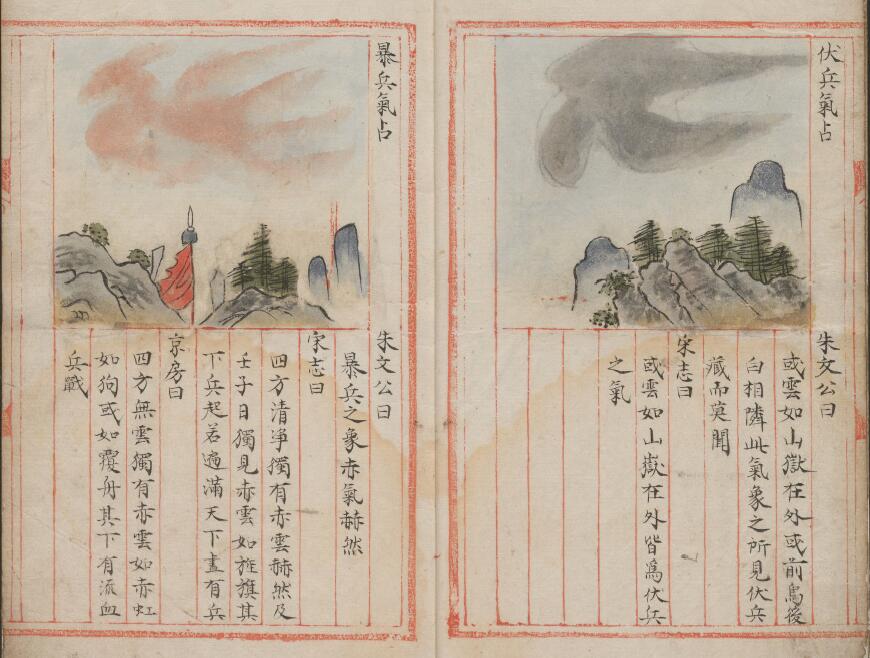 伏兵氣占
朱文公曰
或雲如山獄在外或前烏後
白相隣此氣象之所見伏兵
藏而莫聞
宋志曰
或雲如山嶽在外皆爲伏兵
之氣
暴兵氣占
朱文公曰
暴兵之象赤氣赫然
宋志曰
四方清淨獨有赤雲赫然及
壬子日獨見赤雲如旌旗其
下兵起若遍滿天下盡有兵
京房曰
四方無雲獨有赤雲如赤虹
如狗或如覆舟其下有流血
兵戰